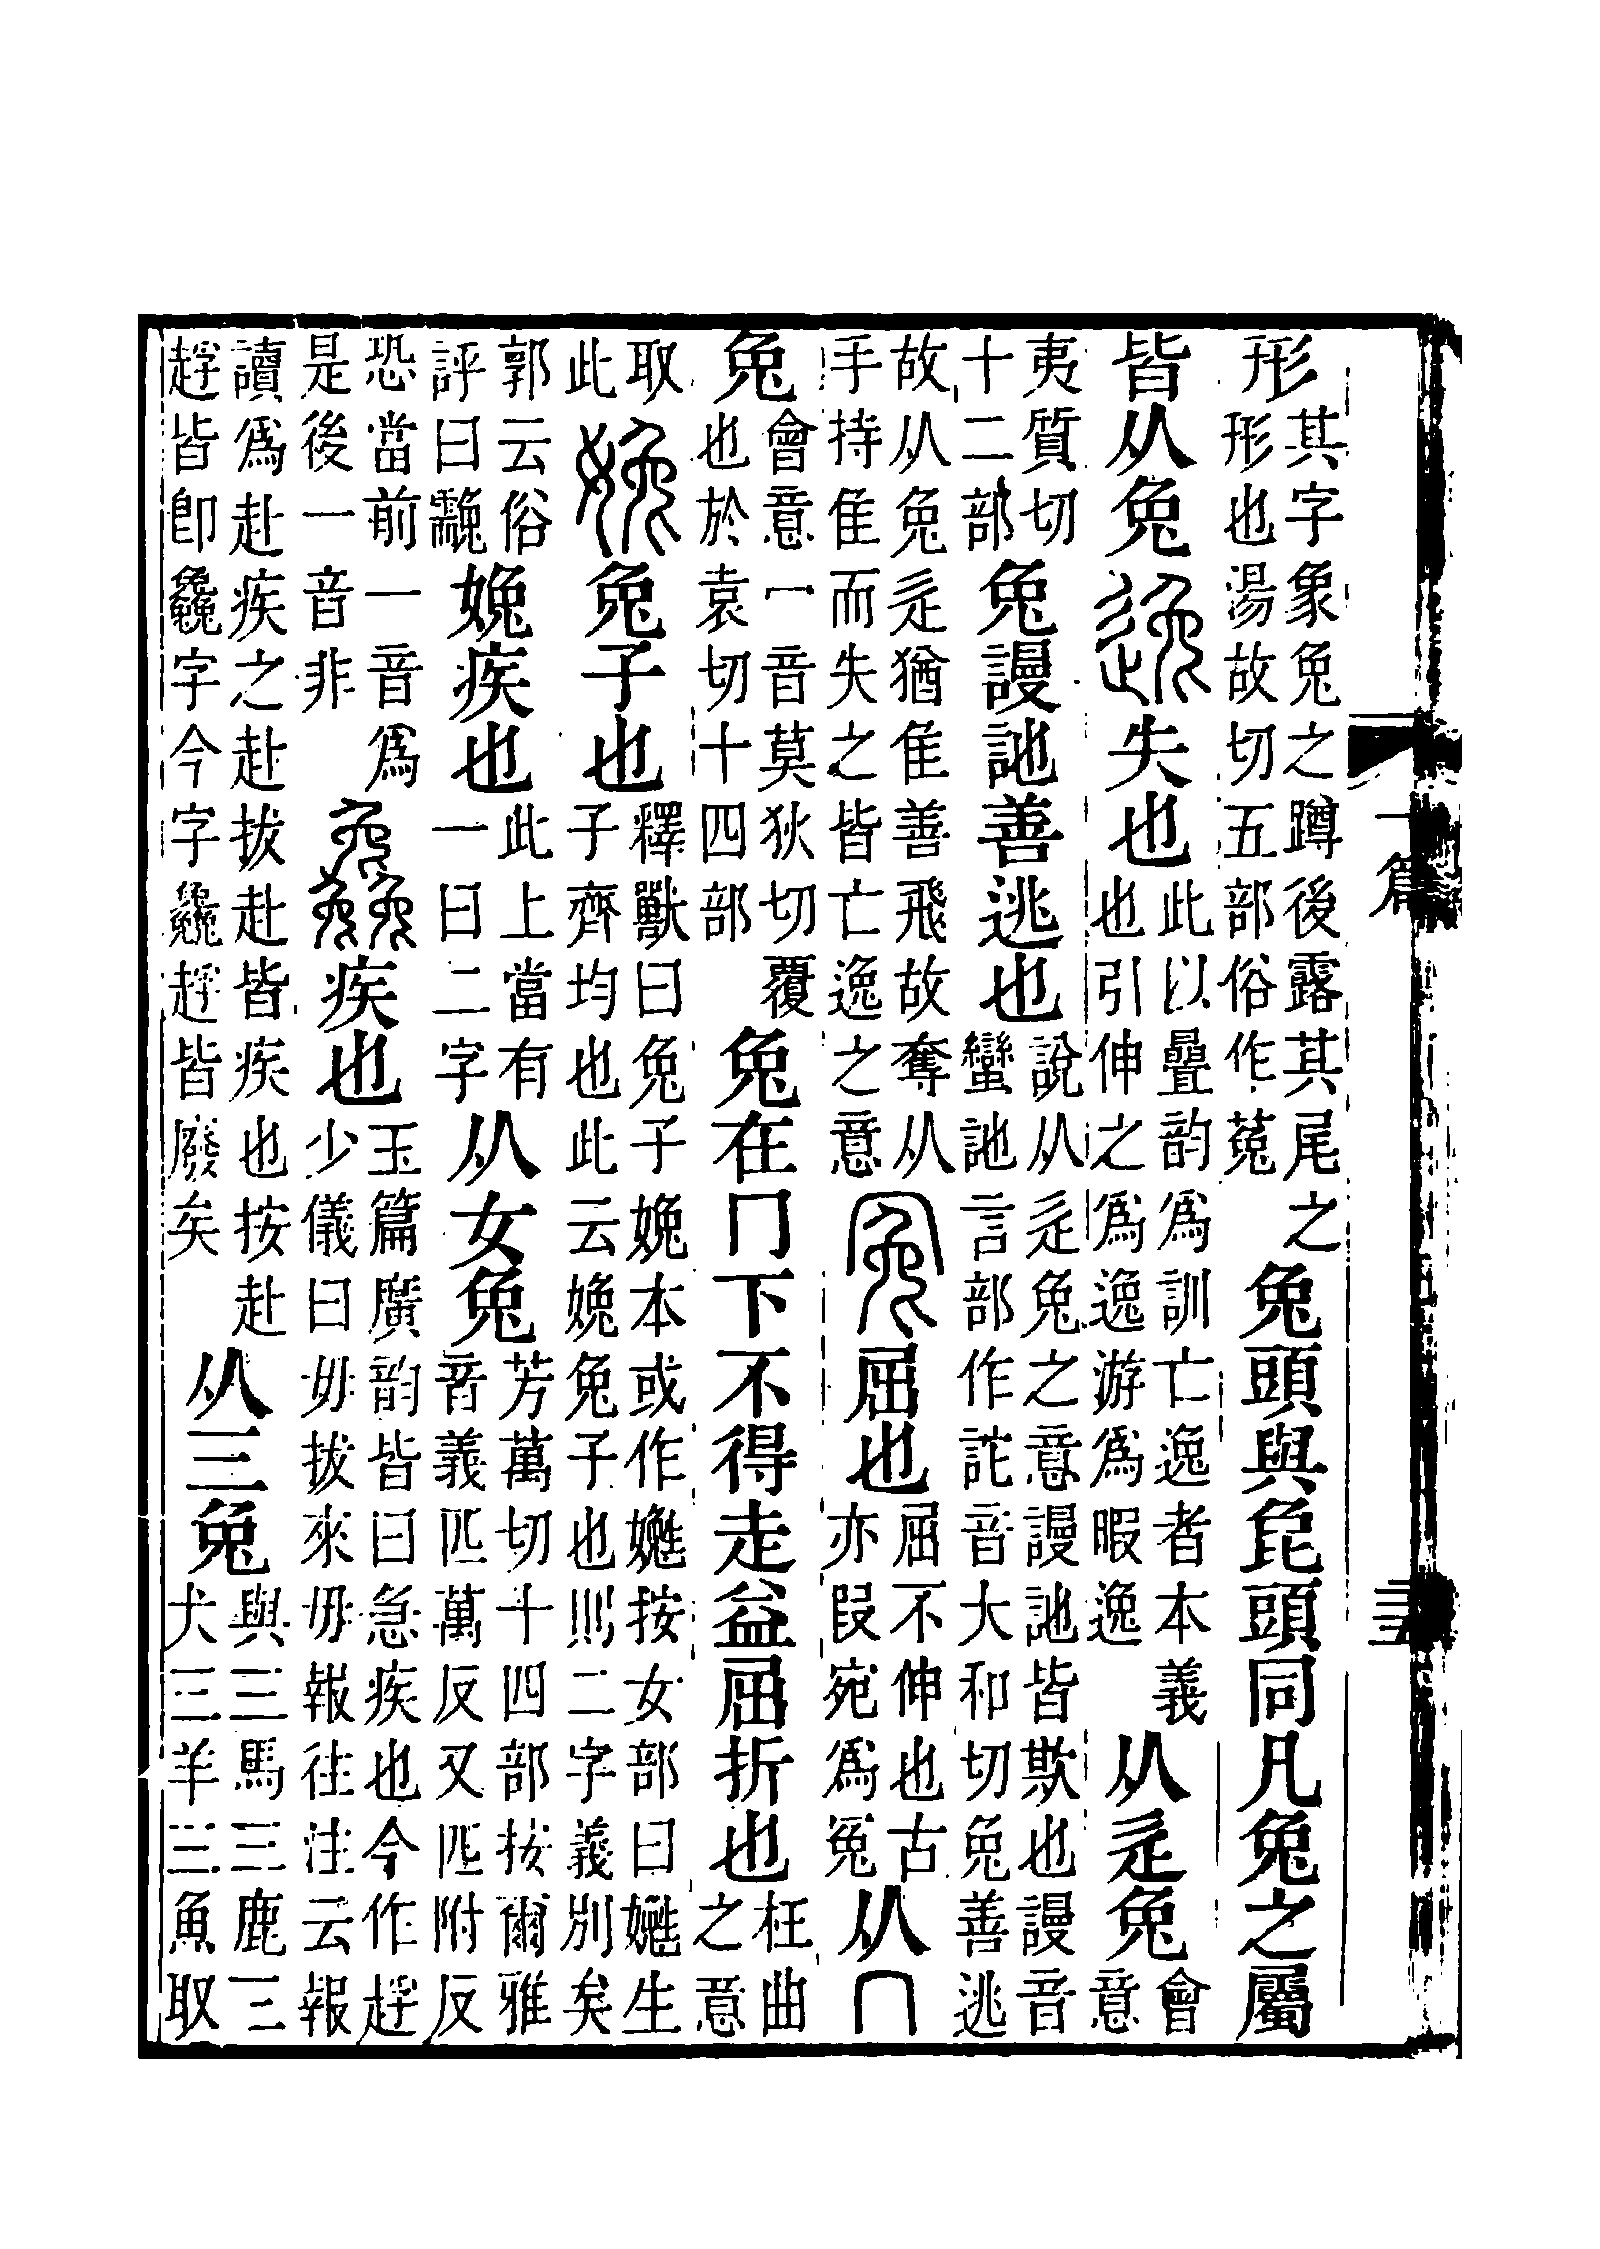 形其字象兔之蹲後露其尾之形也湯故切五部俗作菟兔頭與㲋頭同凡兔之屬
皆从兔逸失也此以疊韵爲訓亡逸者本義也引伸之爲逸游爲暇逸从辵兔會意
夷質切十二部兔謾訑善逃也說从辵兔之意謾訑皆欺也謾音蠻訑言部作詑音大和切兔善逃
故从兔辵猶隹善飛故奪从手持隹而失之皆亡逸之意冤屈也屈不伸也古亦叚宛爲冤从冂
兔會意一音莫狄切覆也於袁切十四部兔在冂下不得走益屈折也枉曲之意
取此娩兔子也釋獸曰兔子娩本或作嬎按女部曰嬎生子齊均也此云娩兔子也則二字義別矣
郭云俗評曰䨲娩疾也此上當有一曰二字从女兔芳萬切十四部按爾雅音義匹萬反又匹附反
恐當前一音爲是後一音非𠓗疾也玉篇廣韵皆曰急疾也今作䞯少儀曰毋拔來毋報往注云報
讀爲赴疾之赴拔赴皆疾也按赴䞯皆卽𠓗字今字𠓗䞯皆廢矣从三兔與三馬三鹿三犬三羊三魚取
篇